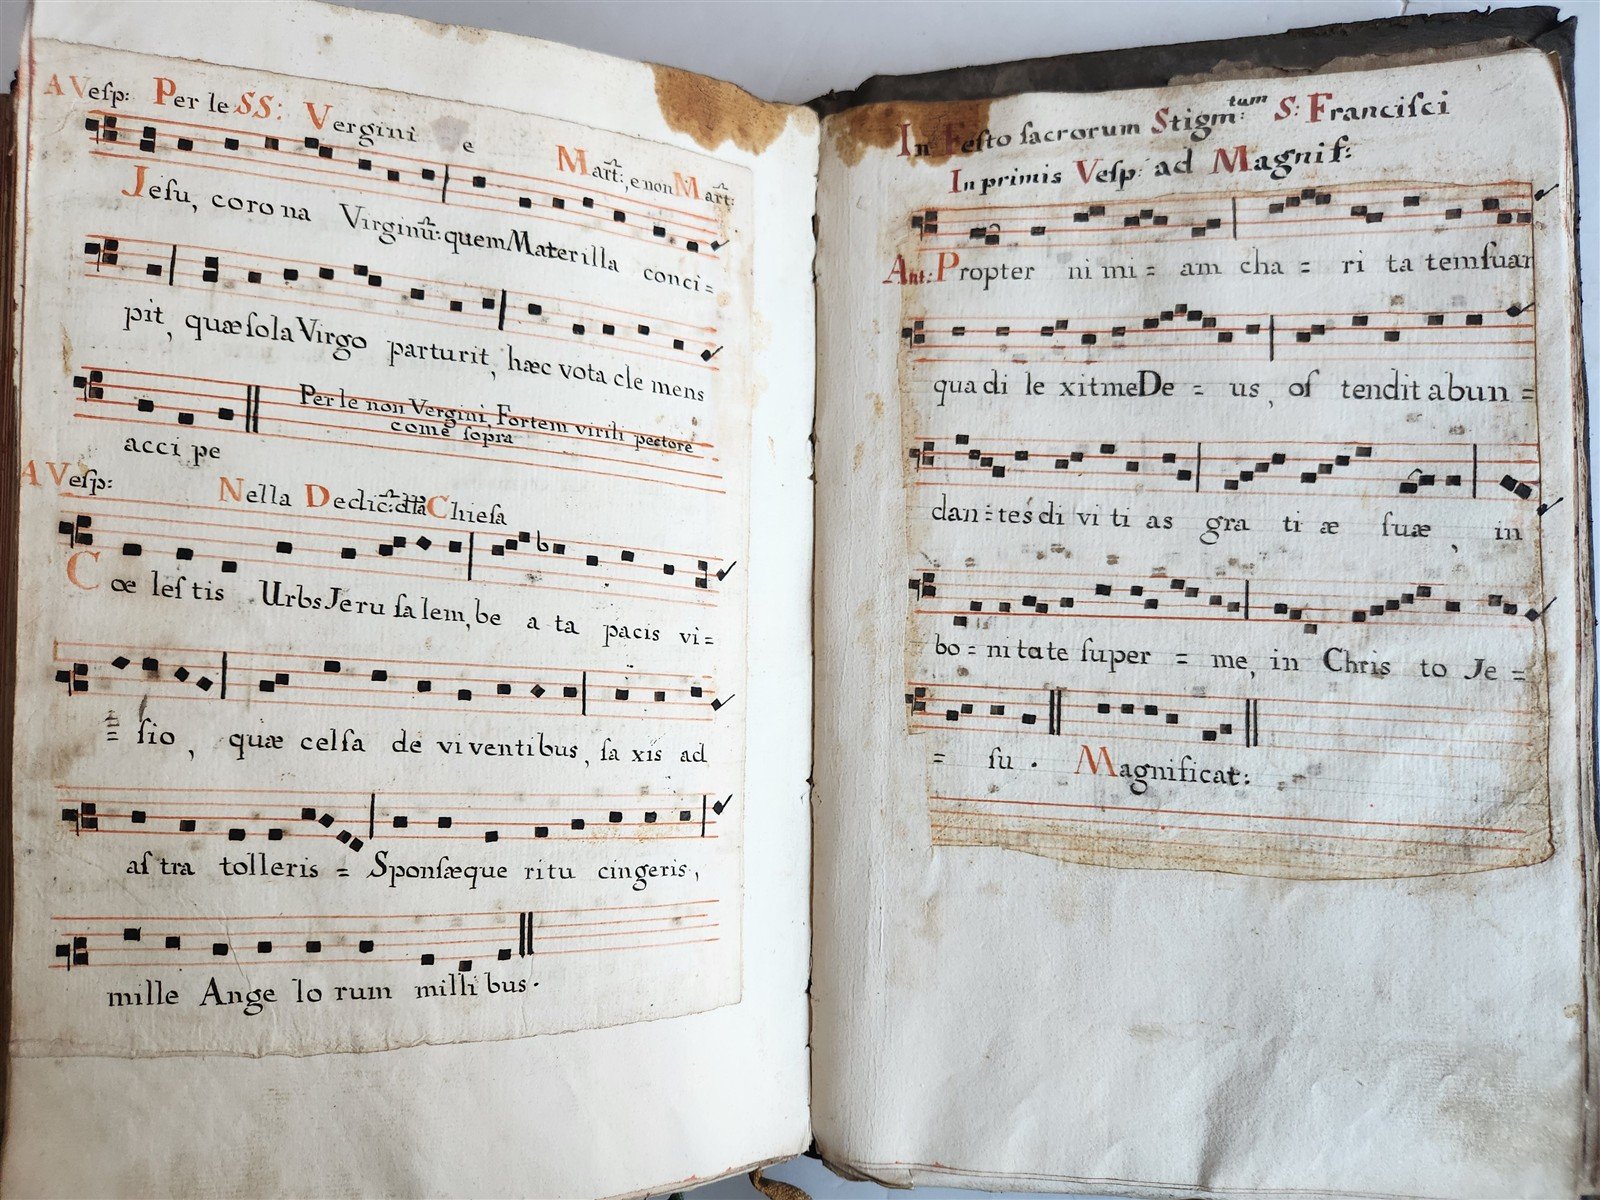 A Veſp: Per le SS: Vergini e Mart:, e non Mart:
Jeſu, coro na Virginũ: quem Mater illa conci =
pit, quæ ſola Virgo parturit, hæc vota cle mens
Per le non Vergini, Fortem virili pectore
come ſopra
acci pe
A Veſp: Nella Dedic: dlla Chieſa
Cœ leſ tis Urbs Jeru ſa lem, be a ta pacis vi =
= ſio, quæ celſa de vi ventibus, ſa xis ad
aſ tra tolleris = Sponſæque ritu cingeris,
mille Ange lo rum milli bus.
In Feſto ſacrorum Stigm:tum S: Franciſci
In primis Veſp: ad Magnif:
Ant: Propter ni mi = am cha = ri ta tem ſuam
qua di le xit me De = us, oſ tendit abun =
dan = tes di vi ti as gra ti æ ſuæ, in
bo = ni tate ſuper = me, in Chris to Je =
= ſu. Magnificat: